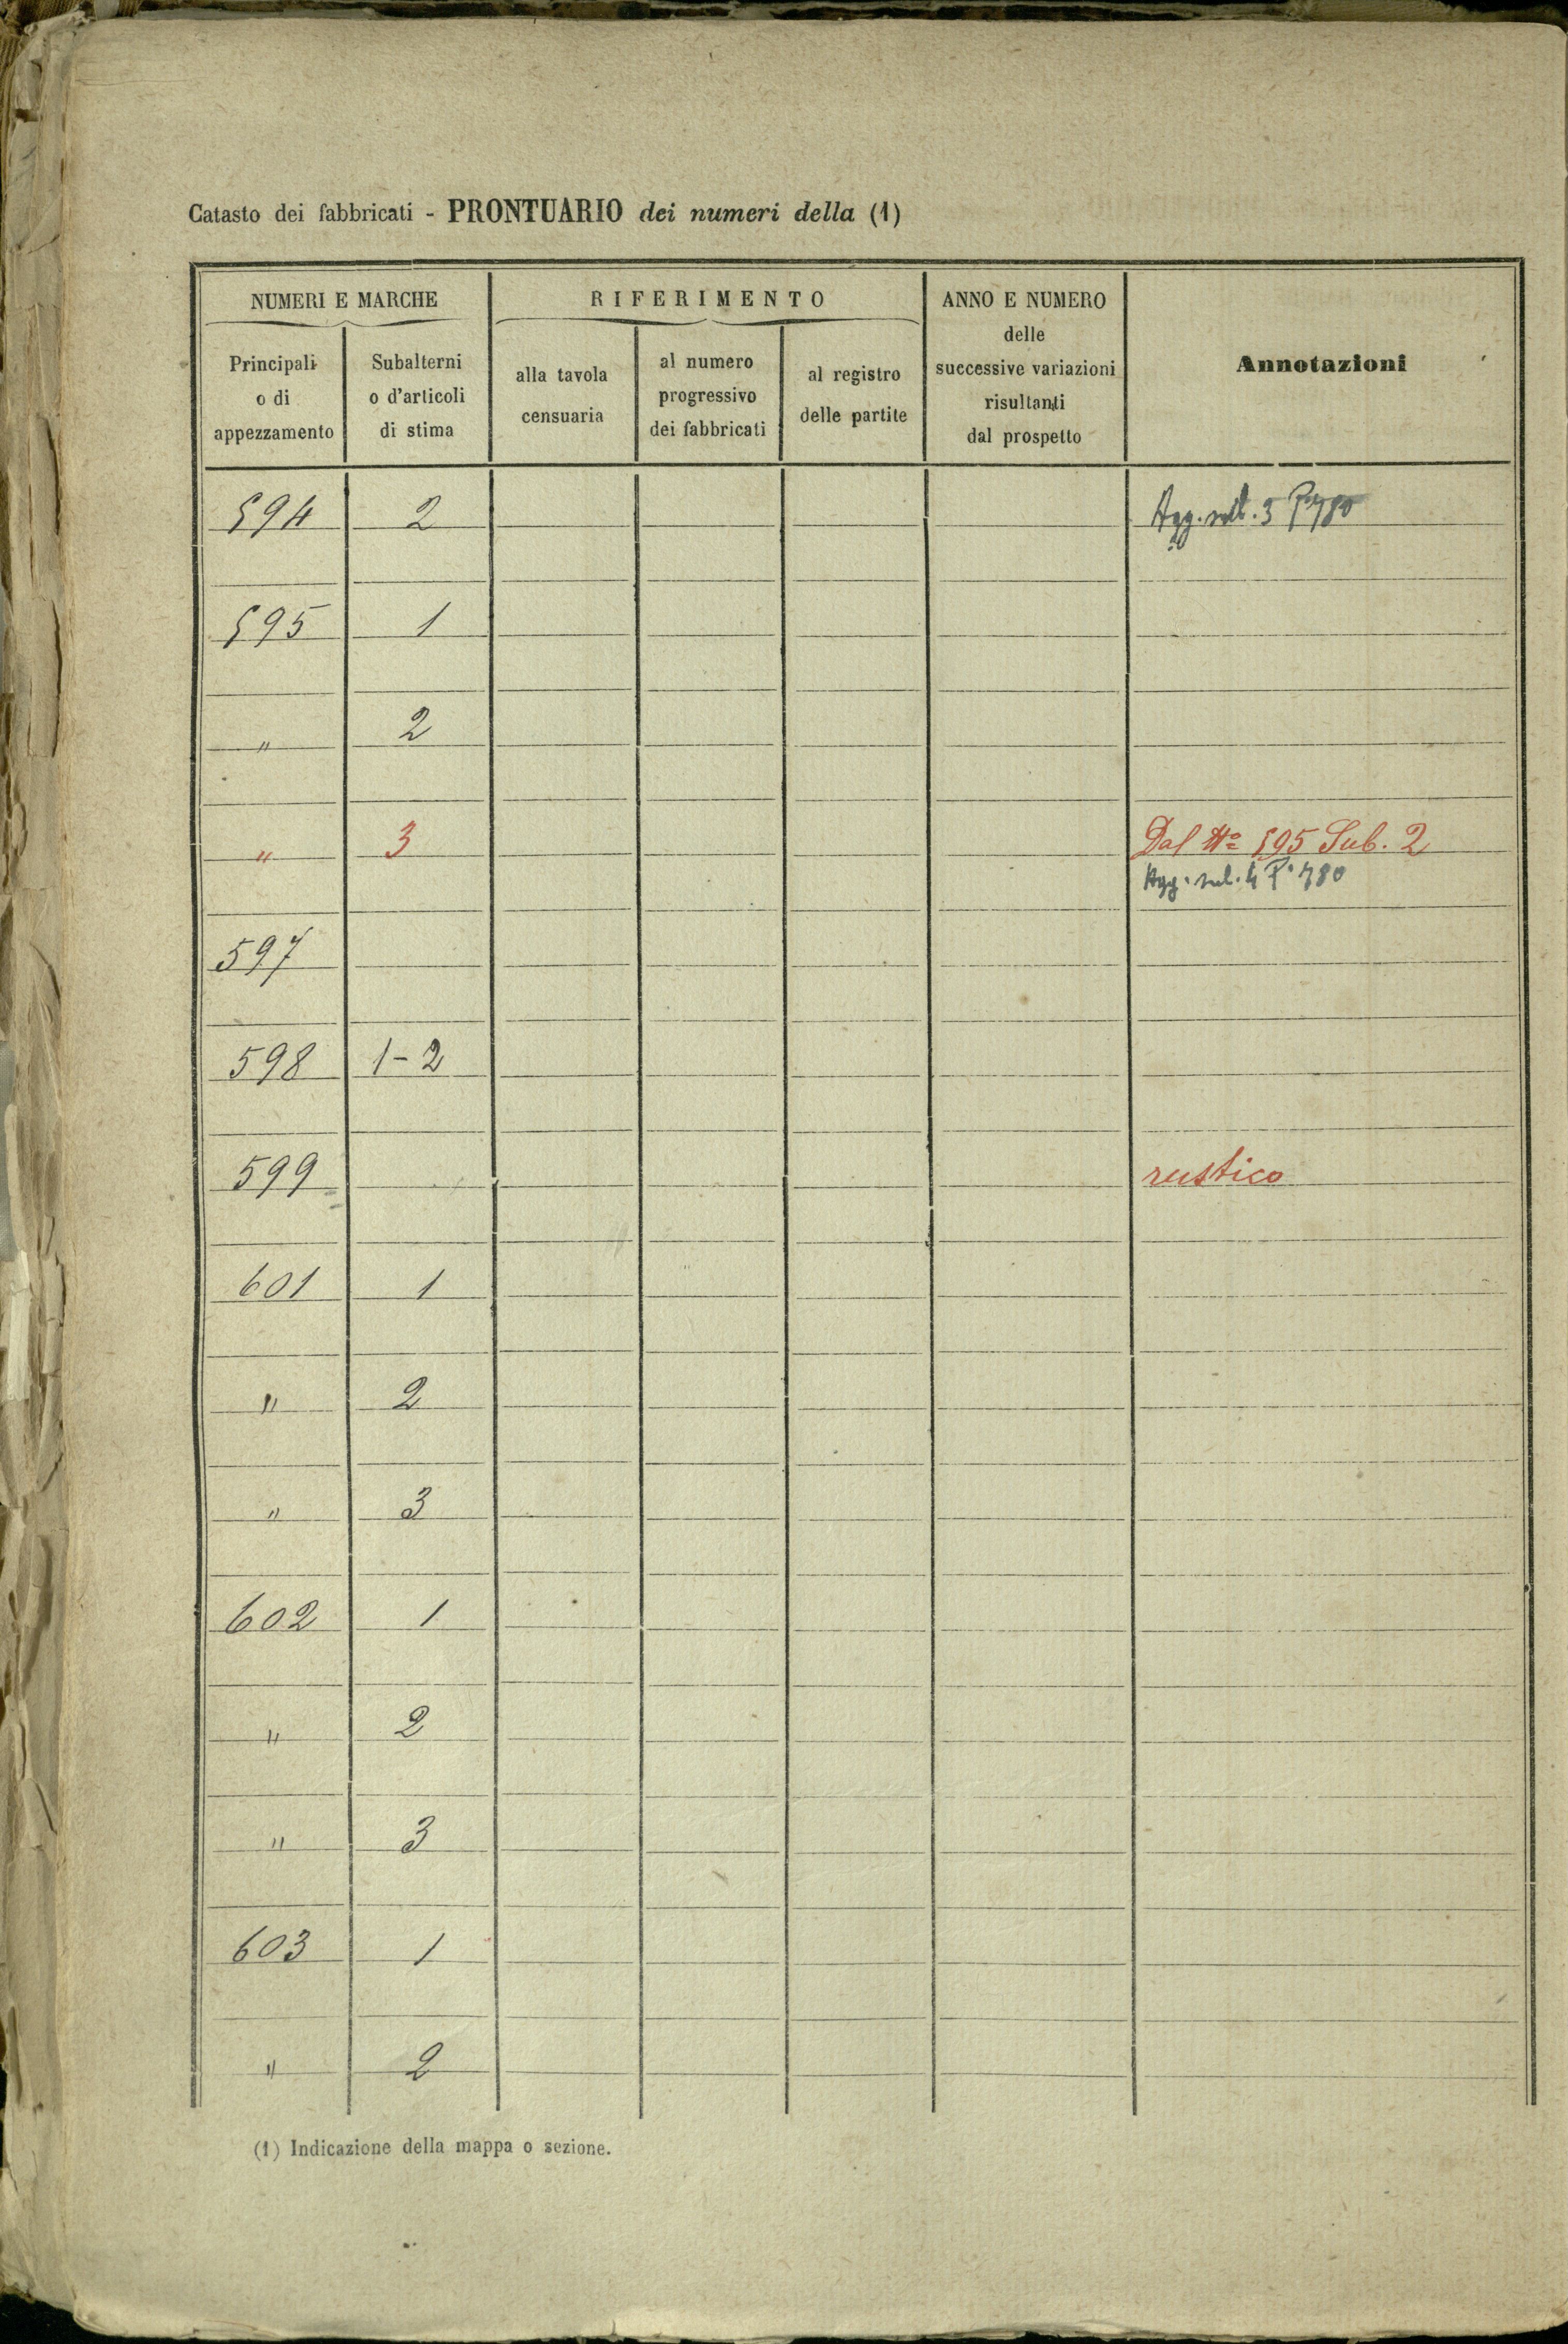 Catasto dei fabbricati - PRONTUARIO dei numeri della (1)
NUMERI E MARCHE
Principali o di appezzamento
Subalterni o d'articoli di stima
RIFERIMENTO
alla tavola censuaria
al numero progressivo dei fabbricati
al registro delle partite
ANNO E NUMERO delle successive variazioni risultanti dal prospetto
Annotazioni
594 2 Agg. sub. 3 P. 780
595 1
" 2
" 3 Dal No 595 Sub. 2
Agg. sub. 4 P. 780
597
598 1-2
599 rustico
601 1
" 2
" 3
602 1
" 2
" 3
603 1
" 2
(1) Indicazione della mappa o sezione.